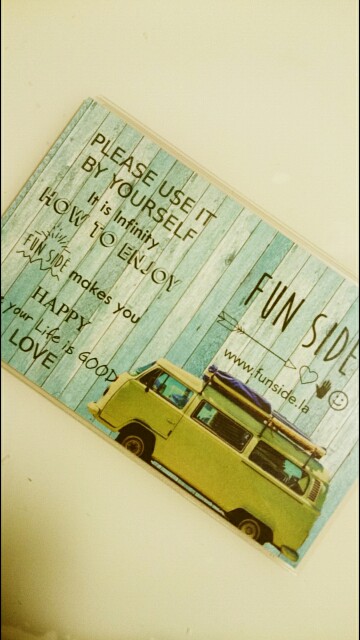 PLEASE USE IT
BY YOURSELF
It is Infinity
HOW TO ENJOY
FUN SIDE makes you
HAPPY
your Life is GOOD
LOVE
FUN SIDE
www.funside.la